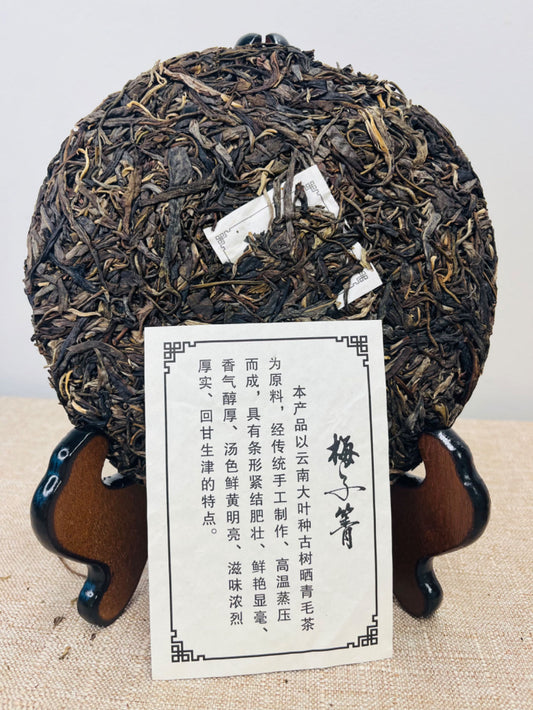 梅子箐
本产品以云南大叶种古树晒青毛茶
为原料，经传统手工制作、高温蒸压
而成，具有条形紧结肥壮、鲜艳显毫、
香气醇厚、汤色鲜黄明亮、滋味浓烈
厚实、回甘生津的特点。